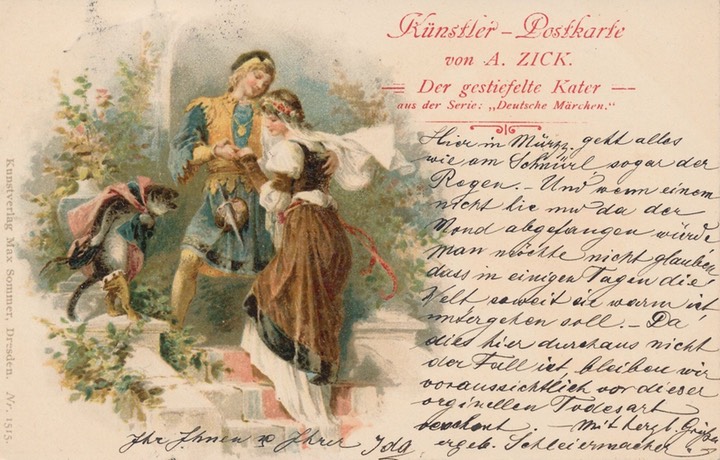 Künstler-Postkarte
von A. ZICK.
Der gestiefelte Kater
aus der Serie: „Deutsche Märchen."
Hier in Mürzz. geht alles
wie am Schnürl sogar der
Regen. - Und wenn einem
nicht hie und da der
Mond abgefangen würde
man möchte nicht glauben
dass in einigen Tagen die
Welt soweit sie warm ist
untergehen soll. - Da
dies hier durchaus nicht
der Fall ist, bleiben wir
voraussichtlich vor dieser
orginellen Todesart
verschont. - Mit herzl. Grüßen
Ihr Ihnen Ihrer Ida ergeb. Schleiermacher
Kunstverlag Max Sommer, Dresden. Nr. 1515.